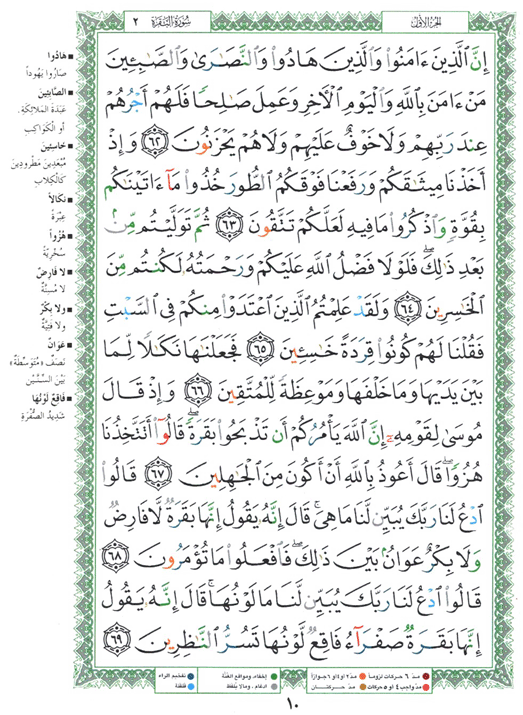 الجزء الأول
سورة البقرة ٢
إِنَّ الَّذِينَ ءَامَنُوا۟ وَالَّذِينَ هَادُوا۟ وَالنَّصَـٰرَىٰ وَالصَّـٰبِـِٔينَ
مَنْ ءَامَنَ بِاللَّهِ وَالْيَوْمِ الْـَٔاخِرِ وَعَمِلَ صَـٰلِحًا فَلَهُمْ أَجْرُهُمْ
عِندَ رَبِّهِمْ وَلَا خَوْفٌ عَلَيْهِمْ وَلَا هُمْ يَحْزَنُونَ ٦٢ وَإِذْ
أَخَذْنَا مِيثَـٰقَكُمْ وَرَفَعْنَا فَوْقَكُمُ الطُّورَ خُذُوا۟ مَآ ءَاتَيْنَـٰكُم
بِقُوَّةٍ وَاذْكُرُوا۟ مَا فِيهِ لَعَلَّكُمْ تَتَّقُونَ ٦٣ ثُمَّ تَوَلَّيْتُم مِّنۢ
بَعْدِ ذَٰلِكَ ۖ فَلَوْلَا فَضْلُ اللَّهِ عَلَيْكُمْ وَرَحْمَتُهُ لَكُنتُم مِّنَ
الْخَـٰسِرِينَ ٦٤ وَلَقَدْ عَلِمْتُمُ الَّذِينَ اعْتَدَوْا۟ مِنكُمْ فِى السَّبْتِ
فَقُلْنَا لَهُمْ كُونُوا۟ قِرَدَةً خَـٰسِـِٔينَ ٦٥ فَجَعَلْنَـٰهَا نَكَـٰلًا لِّمَا
بَيْنَ يَدَيْهَا وَمَا خَلْفَهَا وَمَوْعِظَةً لِّلْمُتَّقِينَ ٦٦ وَإِذْ قَالَ
مُوسَىٰ لِقَوْمِهِۦٓ إِنَّ اللَّهَ يَأْمُرُكُمْ أَن تَذْبَحُوا۟ بَقَرَةً ۖ قَالُوٓا۟ أَتَتَّخِذُنَا
هُزُوًا ۖ قَالَ أَعُوذُ بِاللَّهِ أَنْ أَكُونَ مِنَ الْجَـٰهِلِينَ ٦٧ قَالُوا۟
ادْعُ لَنَا رَبَّكَ يُبَيِّن لَّنَا مَا هِىَ ۚ قَالَ إِنَّهُۥ يَقُولُ إِنَّهَا بَقَرَةٌ لَّا فَارِضٌ
وَلَا بِكْرٌ عَوَانٌۢ بَيْنَ ذَٰلِكَ ۖ فَافْعَلُوا۟ مَا تُؤْمَرُونَ ٦٨
قَالُوا۟ ادْعُ لَنَا رَبَّكَ يُبَيِّن لَّنَا مَا لَوْنُهَا ۚ قَالَ إِنَّهُۥ يَقُولُ
إِنَّهَا بَقَرَةٌ صَفْرَآءُ فَاقِعٌ لَّوْنُهَا تَسُرُّ النَّـٰظِرِينَ ٦٩
هَادُوا
صَارُوا يَهُوداً
الصَّابِئِينَ
عَبَدَةَ المَلَائِكَةِ
أو الكَوَاكِبِ
خَاسِئِينَ
مُبْعَدِينَ مَطْرُودِينَ
كَالْكِلَابِ
نَكَالاً
عِبْرَةً
هُزُواً
سُخْرِيَةً
لا فَارِضٌ
لا مُسِنَّةٌ
ولا بِكْرٌ
ولا فَتِيَّةٌ
عَوَانٌ
نَصَفٌ «مُتَوَسِّطَةٌ»
بَيْنَ السِّنَّيْنِ
فَاقِعٌ لَوْنُهَا
شَدِيدُ الصُّفْرَةِ
مدّ ٦ حركات لزوماً
مدّ ٢ أو ٤ أو ٦ جوازاً
إخفاء، ومواقع الغُنَّة
تفخيم الراء
مدّ واجب ٤ أو ٥ حركات
مدّ حركتان
ادغام، ومالا يُلفَظ
قلقلة
١٠